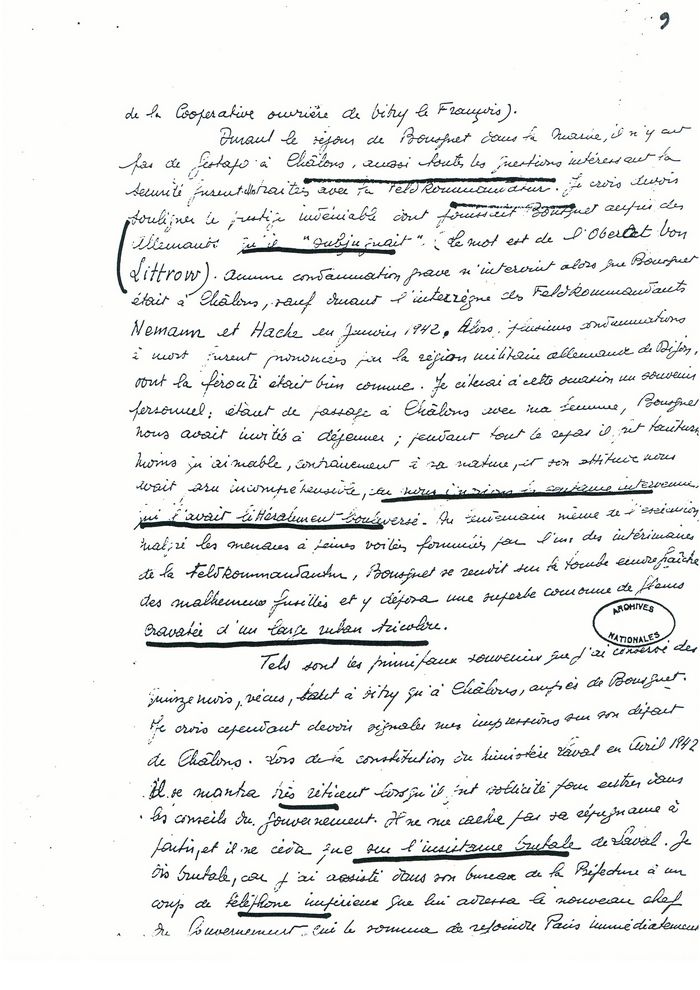 9
de la Cooperative ouvrière de Vitry le François).
Durant le séjour de Bousquet dans la Marne, il n'y eut
pas de Gestapo à Châlons, aussi toutes les questions intéressant la
sécurité furent traitées avec la Feldkommandatur. Je crois devoir
souligner le prestige indéniable dont jouissait Bousquet auprès des
Allemands qu'il "subjuguait". (Le mot est de l'Oberst von
Littrow). Aucune condamnation grave n'intervint alors que Bousquet
était à Châlons, sauf durant l'interrègne des Feldkommandants
Nemann et Hache en Janvier 1942. Alors plusieurs condamnations
à mort furent prononcées par la région militaire allemande de Dijon,
dont la férocité était bien connue. Je citerai à cette occasion un souvenir
personnel: étant de passage à Châlons avec ma femme, Bousquet
nous avait invités à déjeuner; pendant tout le repas il fut taciturne
moins qu'aimable, contrairement à sa nature, et son attitude nous
avait paru incompréhensible, car nous ignorions la
qui l'avait littéralement bouleversé. Au lendemain même de l'exécution
malgré les menaces à peines voilées formulées par l'un des intérimaires
de la Feldkommandantur, Bousquet se rendit sur la tombe encore fraîche
des malheureux fusillés et y déposa une superbe couronne de fleurs
cravatée d'un large ruban tricolore.
ARCHIVES
NATIONALES
Tels sont les principaux souvenirs que j'ai conservé des
quinze mois, vécus, tant à Vitry qu'à Châlons, auprès de Bousquet.
Je crois cependant devoir signaler mes impressions sur son départ
de Châlons. Lors de la constitution du ministère Laval en Avril 1942
il se montra très réticent lorsqu'il fut sollicité pour entrer dans
les conseils du Gouvernement. Il ne me cacha pas sa répugnance à
partir, et il ne céda que sur l'insistance brutale de Laval. Je
dis brutale, car j'ai assisté dans son bureau de la Préfecture à un
coup de téléphone impérieux que lui adressa le nouveau chef
du Gouvernement qui le somma de rejoindre Paris immédiatement